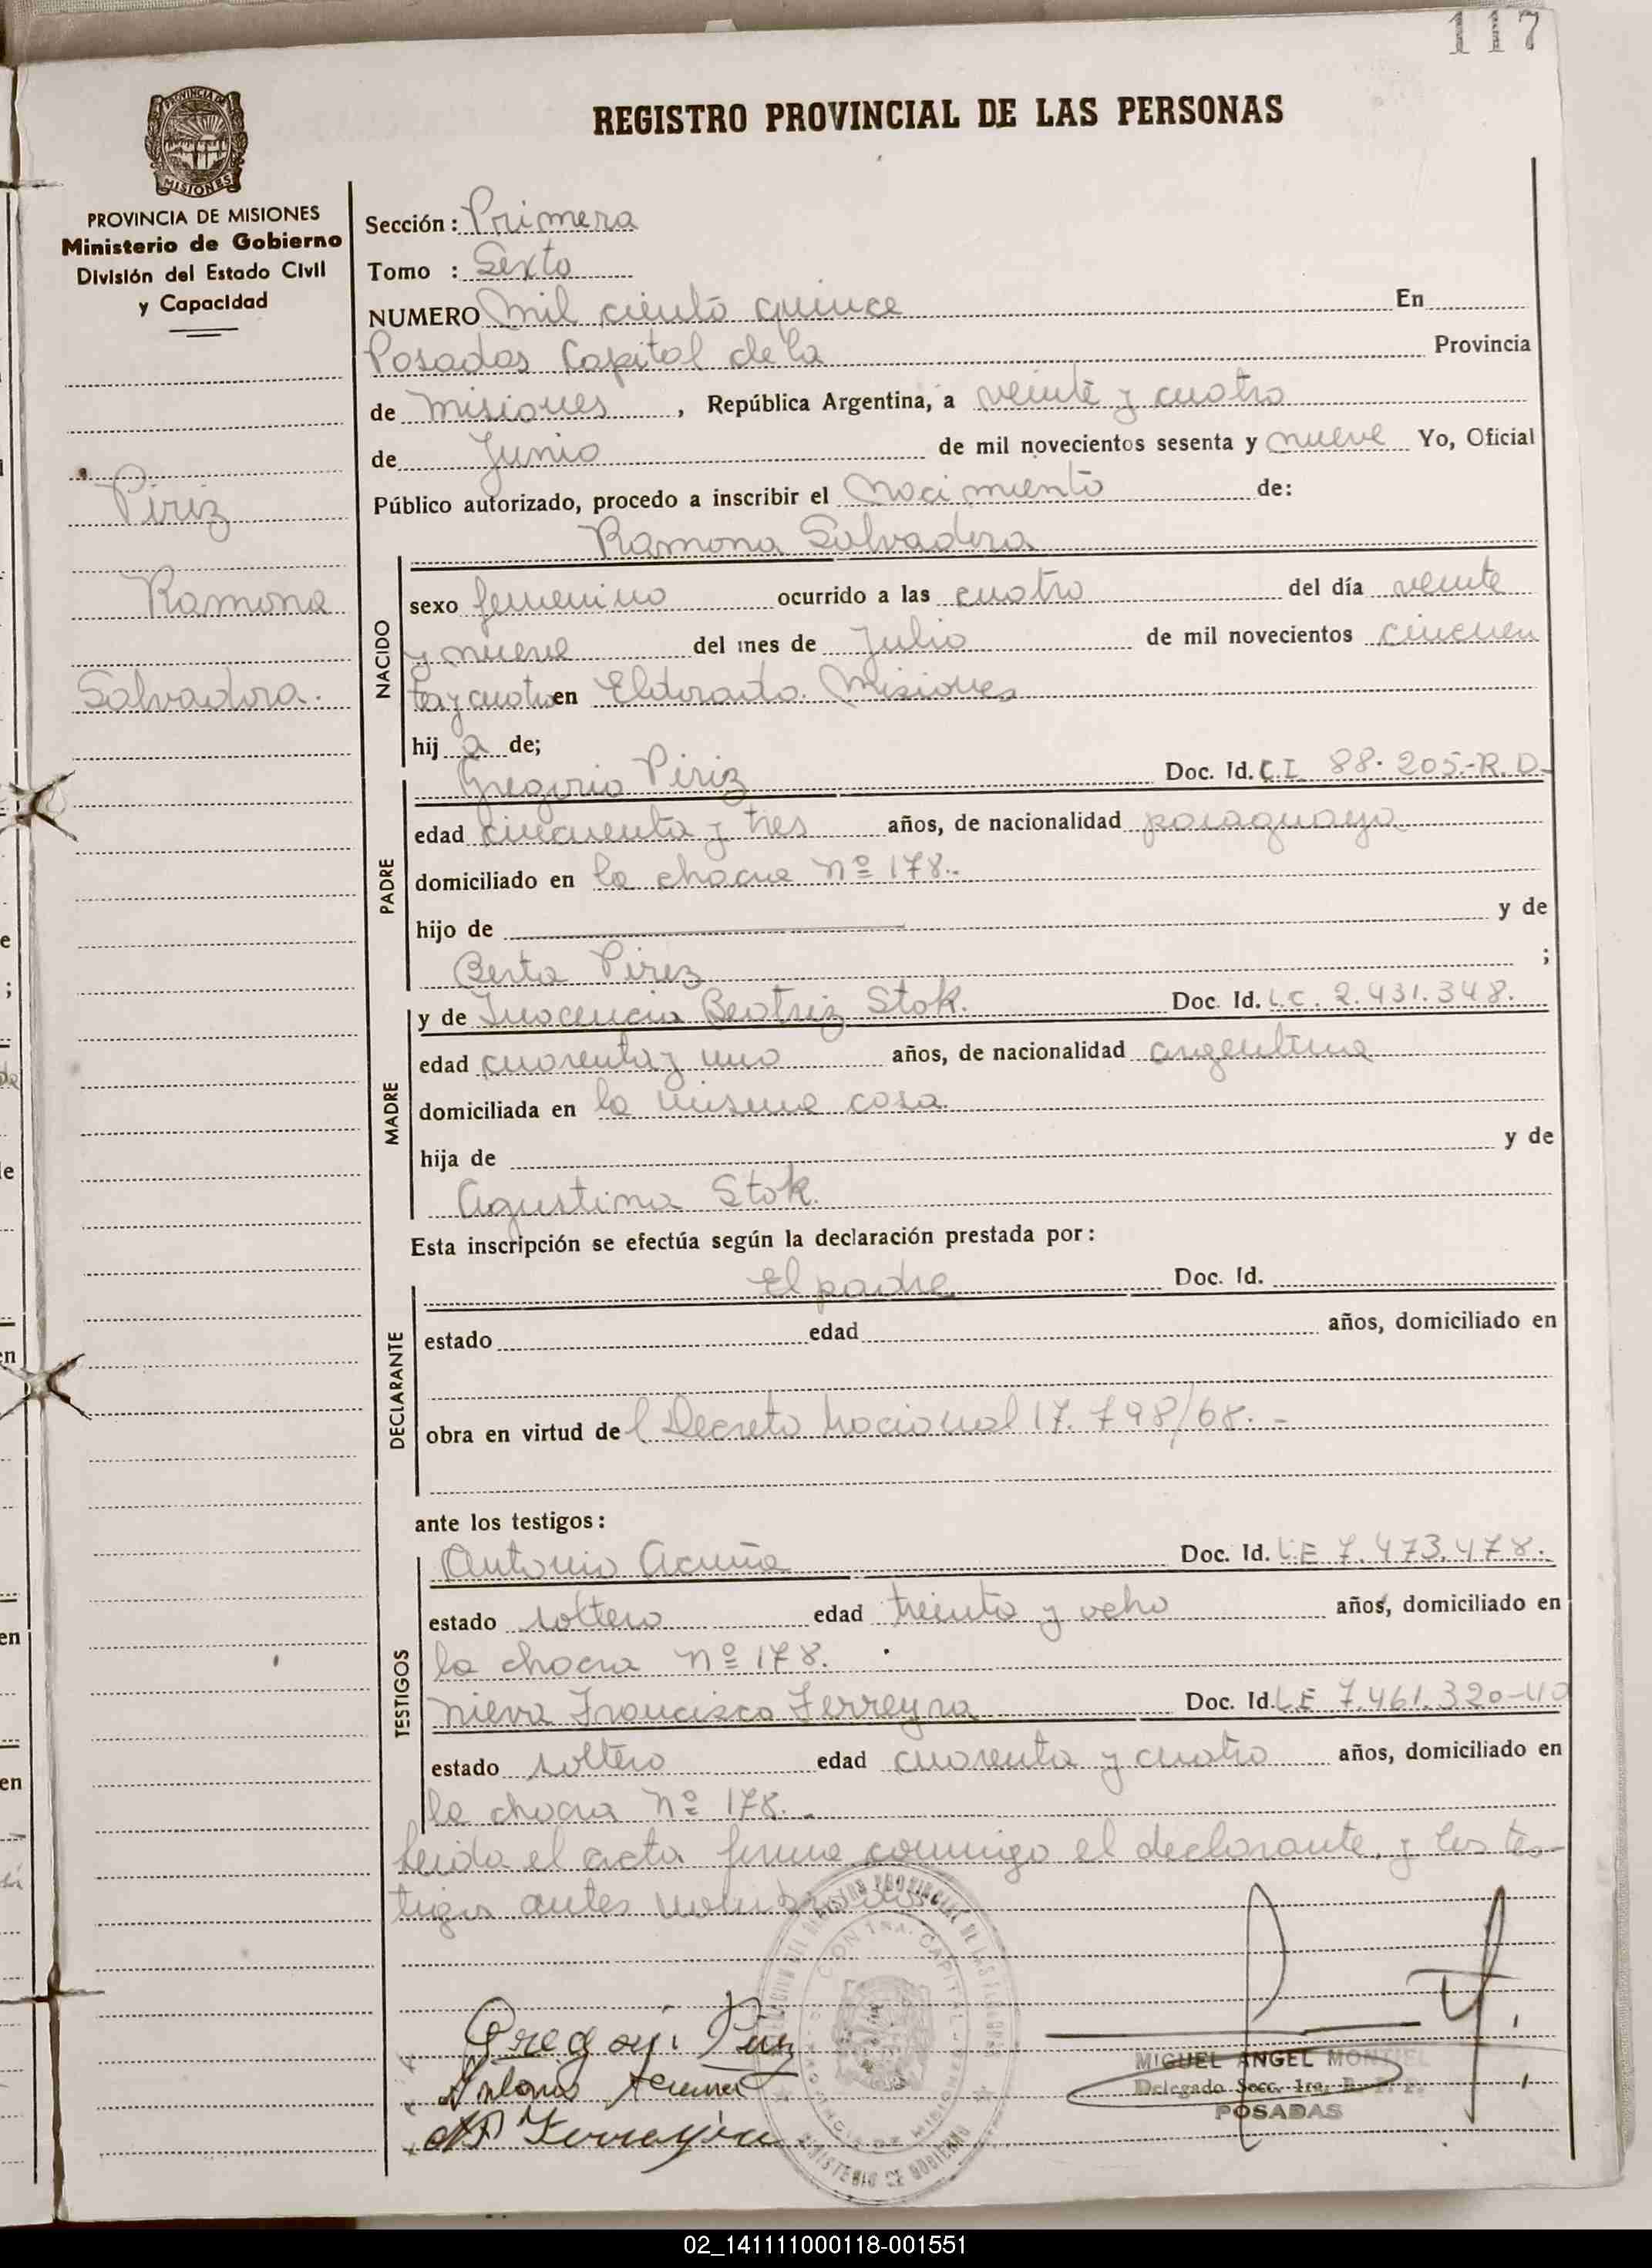 117
REGISTRO PROVINCIAL DE LAS PERSONAS
PROVINCIA DE
MISIONES
PROVINCIA DE MISIONES
Ministerio de Gobierno
División del Estado Civil
y Capacidad
Piriz
Ramona
Salvadora.
Sección: Primera
Tomo : Sexto
NUMERO mil ciento quince En
Posadas Capital de la Provincia
de Misiones, República Argentina, a veinte y cuatro
de Junio de mil novecientos sesenta y nueve Yo, Oficial
Público autorizado, procedo a inscribir el nacimiento de:
Ramona Salvadora
NACIDO
sexo femenino ocurrido a las cuatro del día veinte
y nueve del mes de Julio de mil novecientos cincuen
ta y cuatro en Eldorado. Misiones
hij a de;
PADRE
Gregorio Piriz Doc. Id. C.I. 88.205.-R.D.-
edad cincuenta y tres años, de nacionalidad paraguaya
domiciliado en la chacra Nº 178.-
hijo de y de
Berta Pirez ;
MADRE
y de Inocencia Beatriz Stok. Doc. Id. L.C. 2.431.348.
edad cuarenta y uno años, de nacionalidad argentina
domiciliada en la misma casa.
hija de y de
Agustina Stok.
Esta inscripción se efectúa según la declaración prestada por:
DECLARANTE
El padre Doc. Id.
estado edad años, domiciliado en
obra en virtud del Decreto Nacional 17.798/68.-
ante los testigos:
TESTIGOS
Antonio Acuña Doc. Id. L.E 7.473.478.
estado soltero edad treinta y ocho años, domiciliado en
la chacra Nº 178.
Francisco Ferreyra Doc. Id. L.E 7.461.320-40
estado soltero edad cuarenta y cuatro años, domiciliado en
la chacra Nº 178.-
Leida el acta firma conmigo el declarante, y los tes-
tigos antes nombrados
Gregori Piriz
Antonio Acuña
Ferreyra
MIGUEL ANGEL MONTIEL
Delegado Secc. 1ra. R. P. P.
POSADAS
02_141111000118-001551